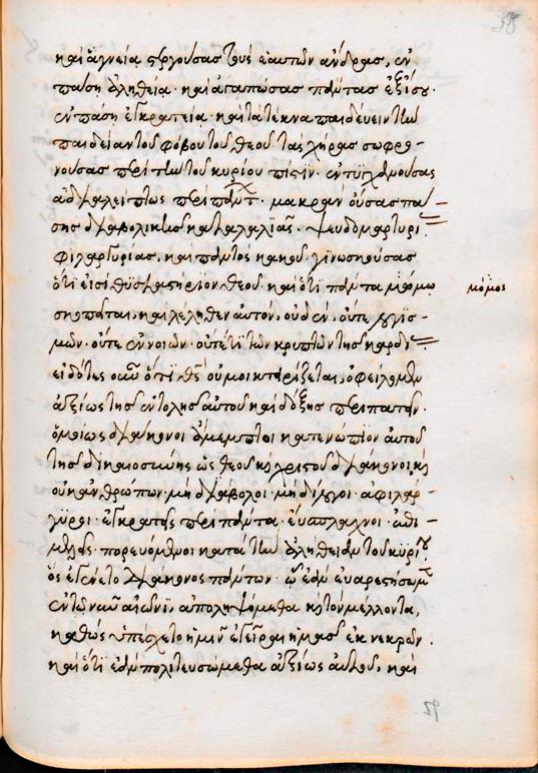 καὶ ἁγνεία στεργούσας τοὺς ἑαυτῶν ἄνδρας, ἐν
πάση ἀληθεία· καὶ ἀγαπώσας πάντας ἐξίσου·
ἐν πάση ἐγκρατεία· καὶ τὰ τέκνα παιδεύειν τὴν
παιδείαν τοῦ φόβου τοῦ θεοῦ τὰς χήρας σωφρο-
νούσας περὶ τὴν τοῦ κυρίου πίστιν· ἐντυγχανούσας
ἀδιαλείπτως περὶ πάντ· μακρὰν οὔσας πά-
σης διαβολικῆς καταλαλιᾶς· ψευδομαρτυρι
φιλαργυρίας, καὶ παντὸς κακοῦ· γϊνωσκούσας
ὅτι εἰσὶ θϋσιαστήριον θεοῦ· καὶ ὅτι πάντα μῶμο
σκοπεῖται, καὶ λέληθεν αὐτὸν, οὐδέν· οὔτε λογϊσ-
μῶν· οὔτε ἐννοιῶν· οὔτέ τϊ τῶν κρυπτῶν τῆς καρδί
εἰδότες οὖν ὅτι θς οὐ μυκτηρίζεται, ὀφείλομεν
ἀξίως τῆς ἐντολῆς αὐτοῦ καὶ δόξης περιπατεῖν·
ὁμοίως διάκονοι ἄμεμπτοι κατενώπϊον αὐτοῦ
τῆς δϊκαιοσύνης ὡς θεοῦ καὶ χριστοῦ διάκονοι καὶ
οὐκ ἀνθρώπων· μὴ διάβολοι· μὴ δίλογοι· ἀφιλάρ-
γϋροι· ἐγκρατεῖς περὶ πάντα· εὔσπλαχνοι· ἐπι-
μελεῖς· πορευόμενοι κατὰ τὴν ἀλήθειαν τοῦ κυρίου
ὃς ἐγένετο διάκονος πάντων· ᾧ ἐὰν εὐαρεστήσωμεν
ἐν τῷ νῦν αἰῶνϊ, ἀποληψόμεθα καὶ τὸν μέλλοντα,
καθὼς ὑπέσχετο ἡμῖν ἐγεῖραι ἡμᾶς ἐκ νεκρῶν·
καὶ ὅτι ἐὰν πολιτευσώμεθα ἀξίως αὐτοῦ, καὶ
μῶμοι